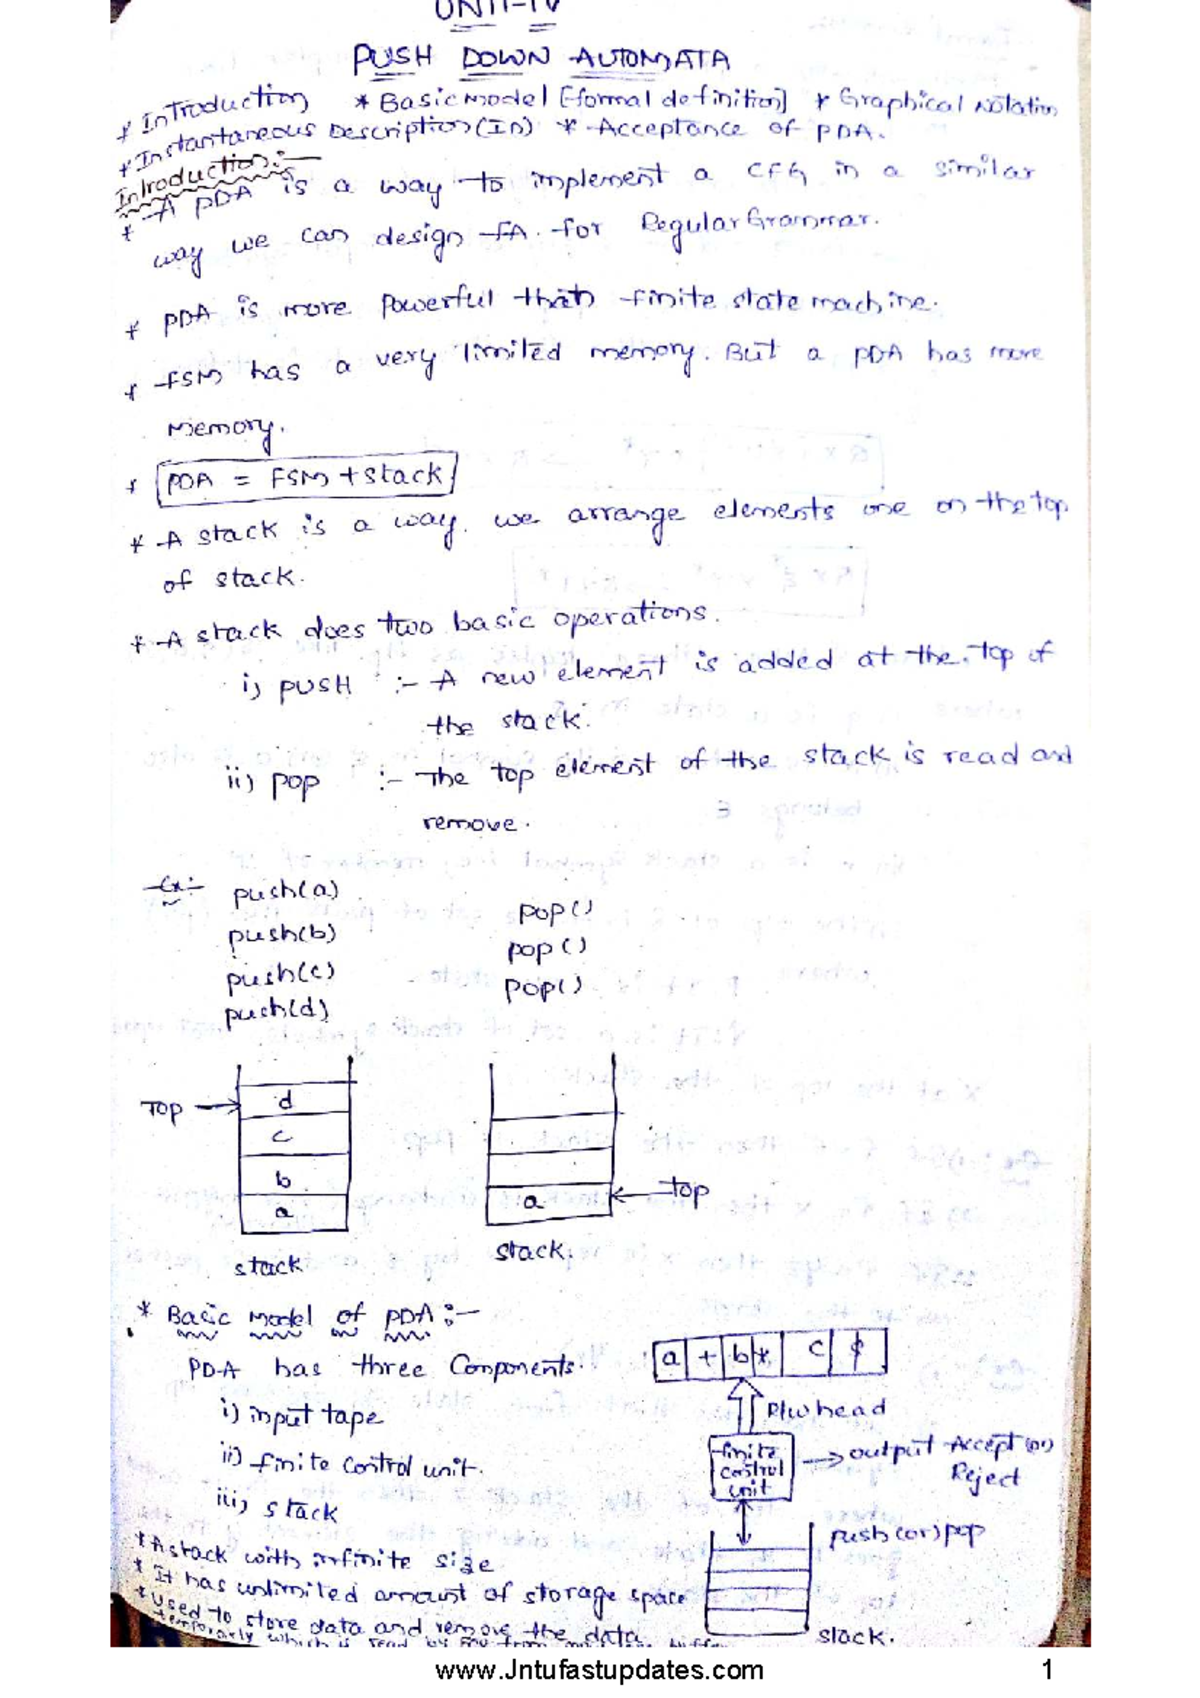 UNIT-IV
PUSH DOWN AUTOMATA
* Introduction * Basic Model [formal definition] * Graphical Notation
* Instantaneous Description (ID) * Acceptance of PDA.
Introduction:-
* A PDA is a way to implement a CFG in a similar
way we can design FA for Regular Grammar.
* PDA is more powerful than finite state machine.
* FSM has a very limited memory. But a PDA has more
Memory.
* PDA = FSM + stack
* A stack is a way we arrange elements one on the top
of stack.
* A stack does two basic operations.
i) PUSH :- A new element is added at the top of
the stack.
ii) POP :- The top element of the stack is read and
remove.
Ex:-
push(a) pop()
push(b) pop()
push(c) pop()
push(d)
TOP d
c
b
a a top
stack stack.
* Basic Model of PDA:-
PDA has three Components.
i) input tape
ii) finite control unit.
iii) stack
a + b * c $
R/w head
finite control unit
output Accept (or)
Reject
push (or) pop
stack.
* A stack with infinite size.
* It has unlimited amount of storage space
* used to store data and remove the data
temporarly which is read by
www.Jntufastupdates.com 1